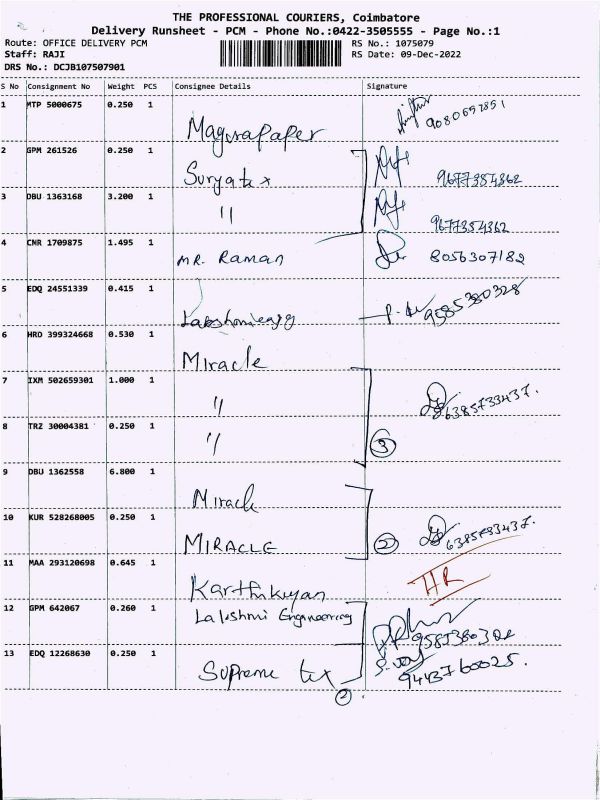 THE PROFESSIONAL COURIERS, Coimbatore
Delivery Runsheet - PCM - Phone No.:0422-3505555 - Page No.:1
Route: OFFICE DELIVERY PCM RS No.: 1075079
Staff: RAJI RS Date: 09-Dec-2022
DRS No.: DCJB107507901
S No Consignment No Weight PCS Consignee Details Signature
1 MTP 5000675 0.250 1 Magurapaper
2 GPM 261526 0.250 1 Suryatex 9677354362
3 DBU 1363168 3.200 1 " 9677354362
4 CNR 1709875 1.495 1 MR. Raman 8056307182
5 EDQ 24551339 0.415 1 9585380328
6 HRO 399324668 0.530 1 Miracle
7 IXM 502659301 1.000 1 "
8 TRZ 30004381 0.250 1 " 3
9 DBU 1362558 6.800 1 Miracle
10 KUR 528268005 0.250 1 MIRACLE 2
11 MAA 293120698 0.645 1 Karthikeyan HR
12 GPM 642067 0.260 1 Lakshmi Engineering
13 EDQ 12268630 0.250 1 Supreme tex 9443760025.
2